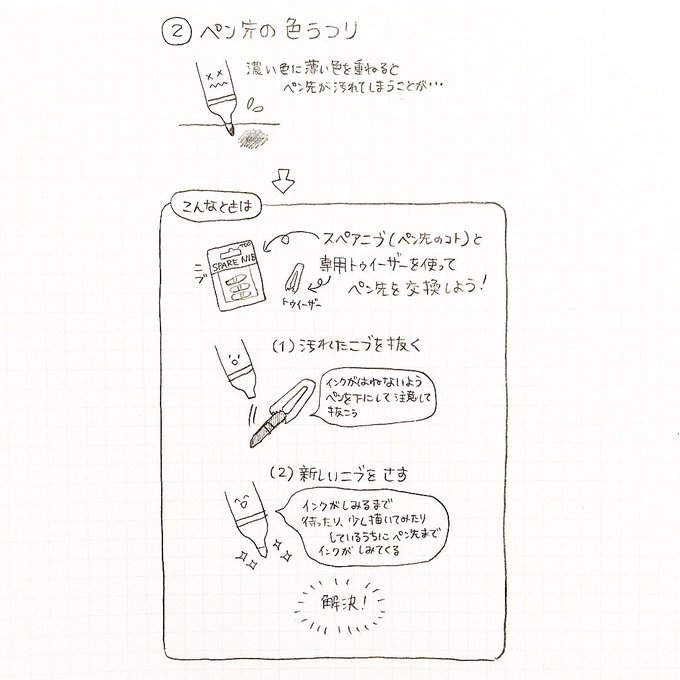 ② ペン先の色うつり
濃い色に薄い色を重ねると
ペン先が汚れてしまうことが…
こんなときは
スペアニブ(ペン先のコト)と
専用トゥイーザーを使って
ペン先を交換しよう!
SPARE NIB
ニブ
トゥイーザー
(1) 汚れたニブを抜く
インクがはねないよう
ペンを下にして注意して
抜こう
(2) 新しいニブをさす
インクがしみるまで
待ったり、少し描いてみたり
しているうちにペン先まで
インクがしみてくる
解決!